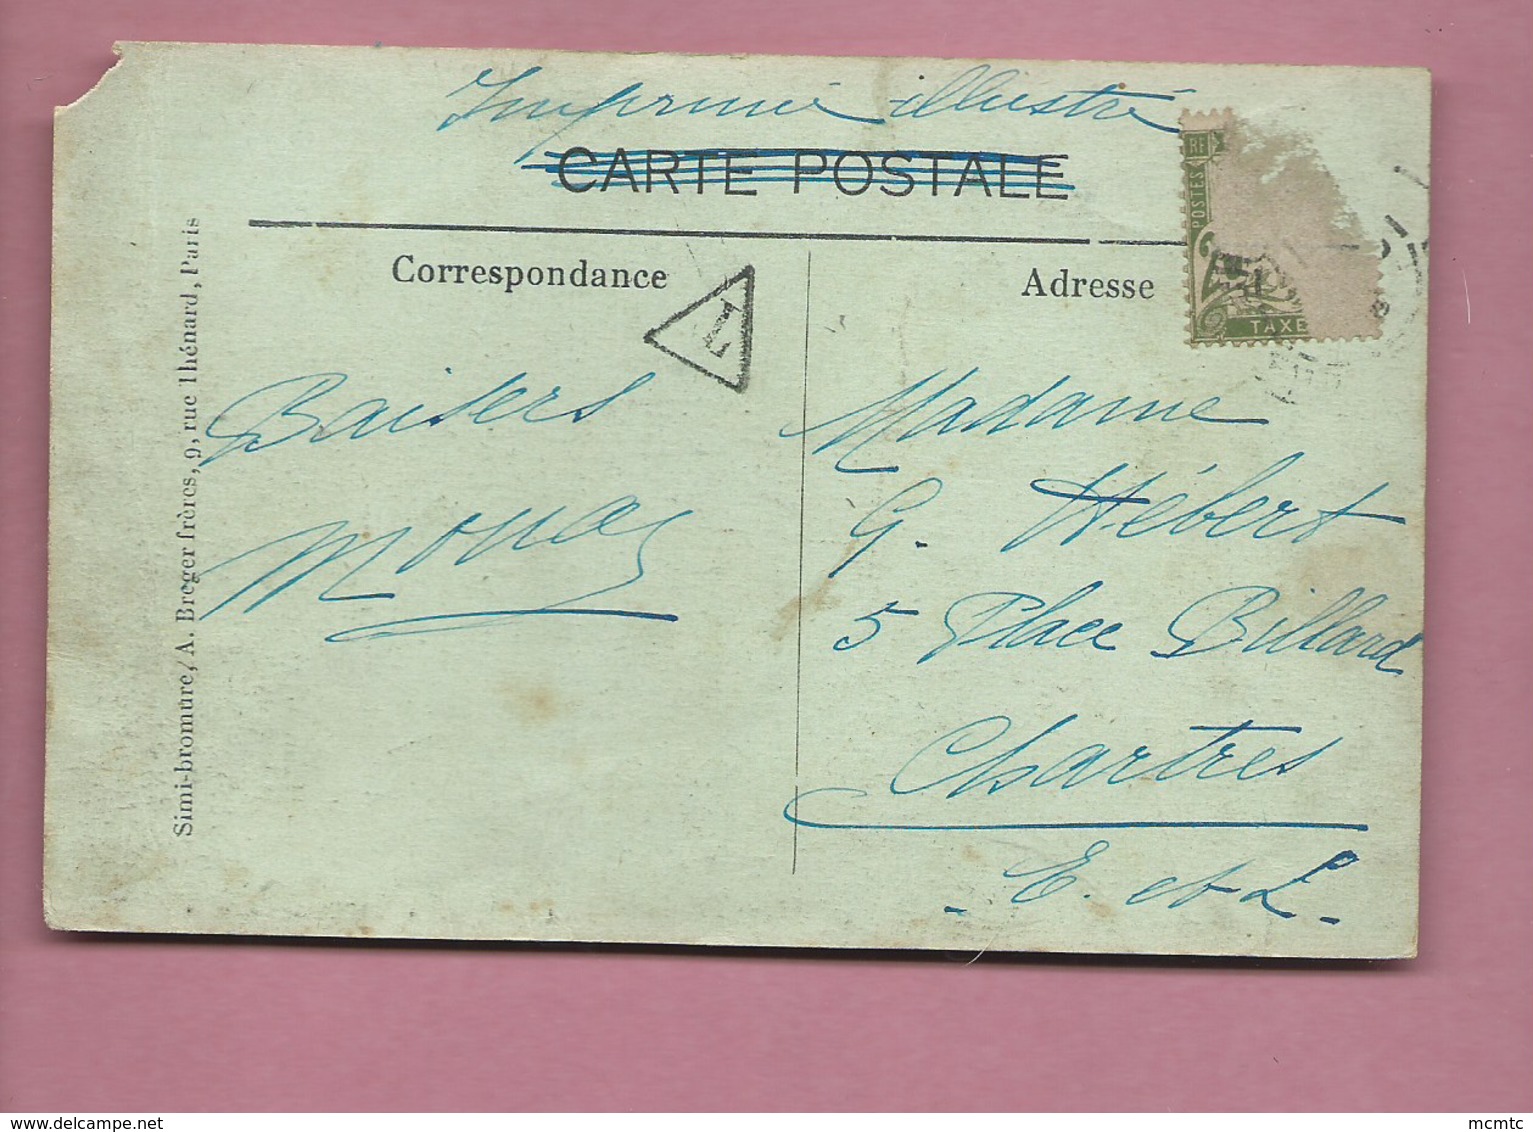 Imprimé illustré
CARTE POSTALE
Correspondance
Adresse
RF
POSTES
TAXE
T
Baisers
Madame
G. Hébert
5 Place Billard
Chartres
E. et L.
Simi-bromure, A. Breger frères, 9, rue Thénard, Paris
mcmtc